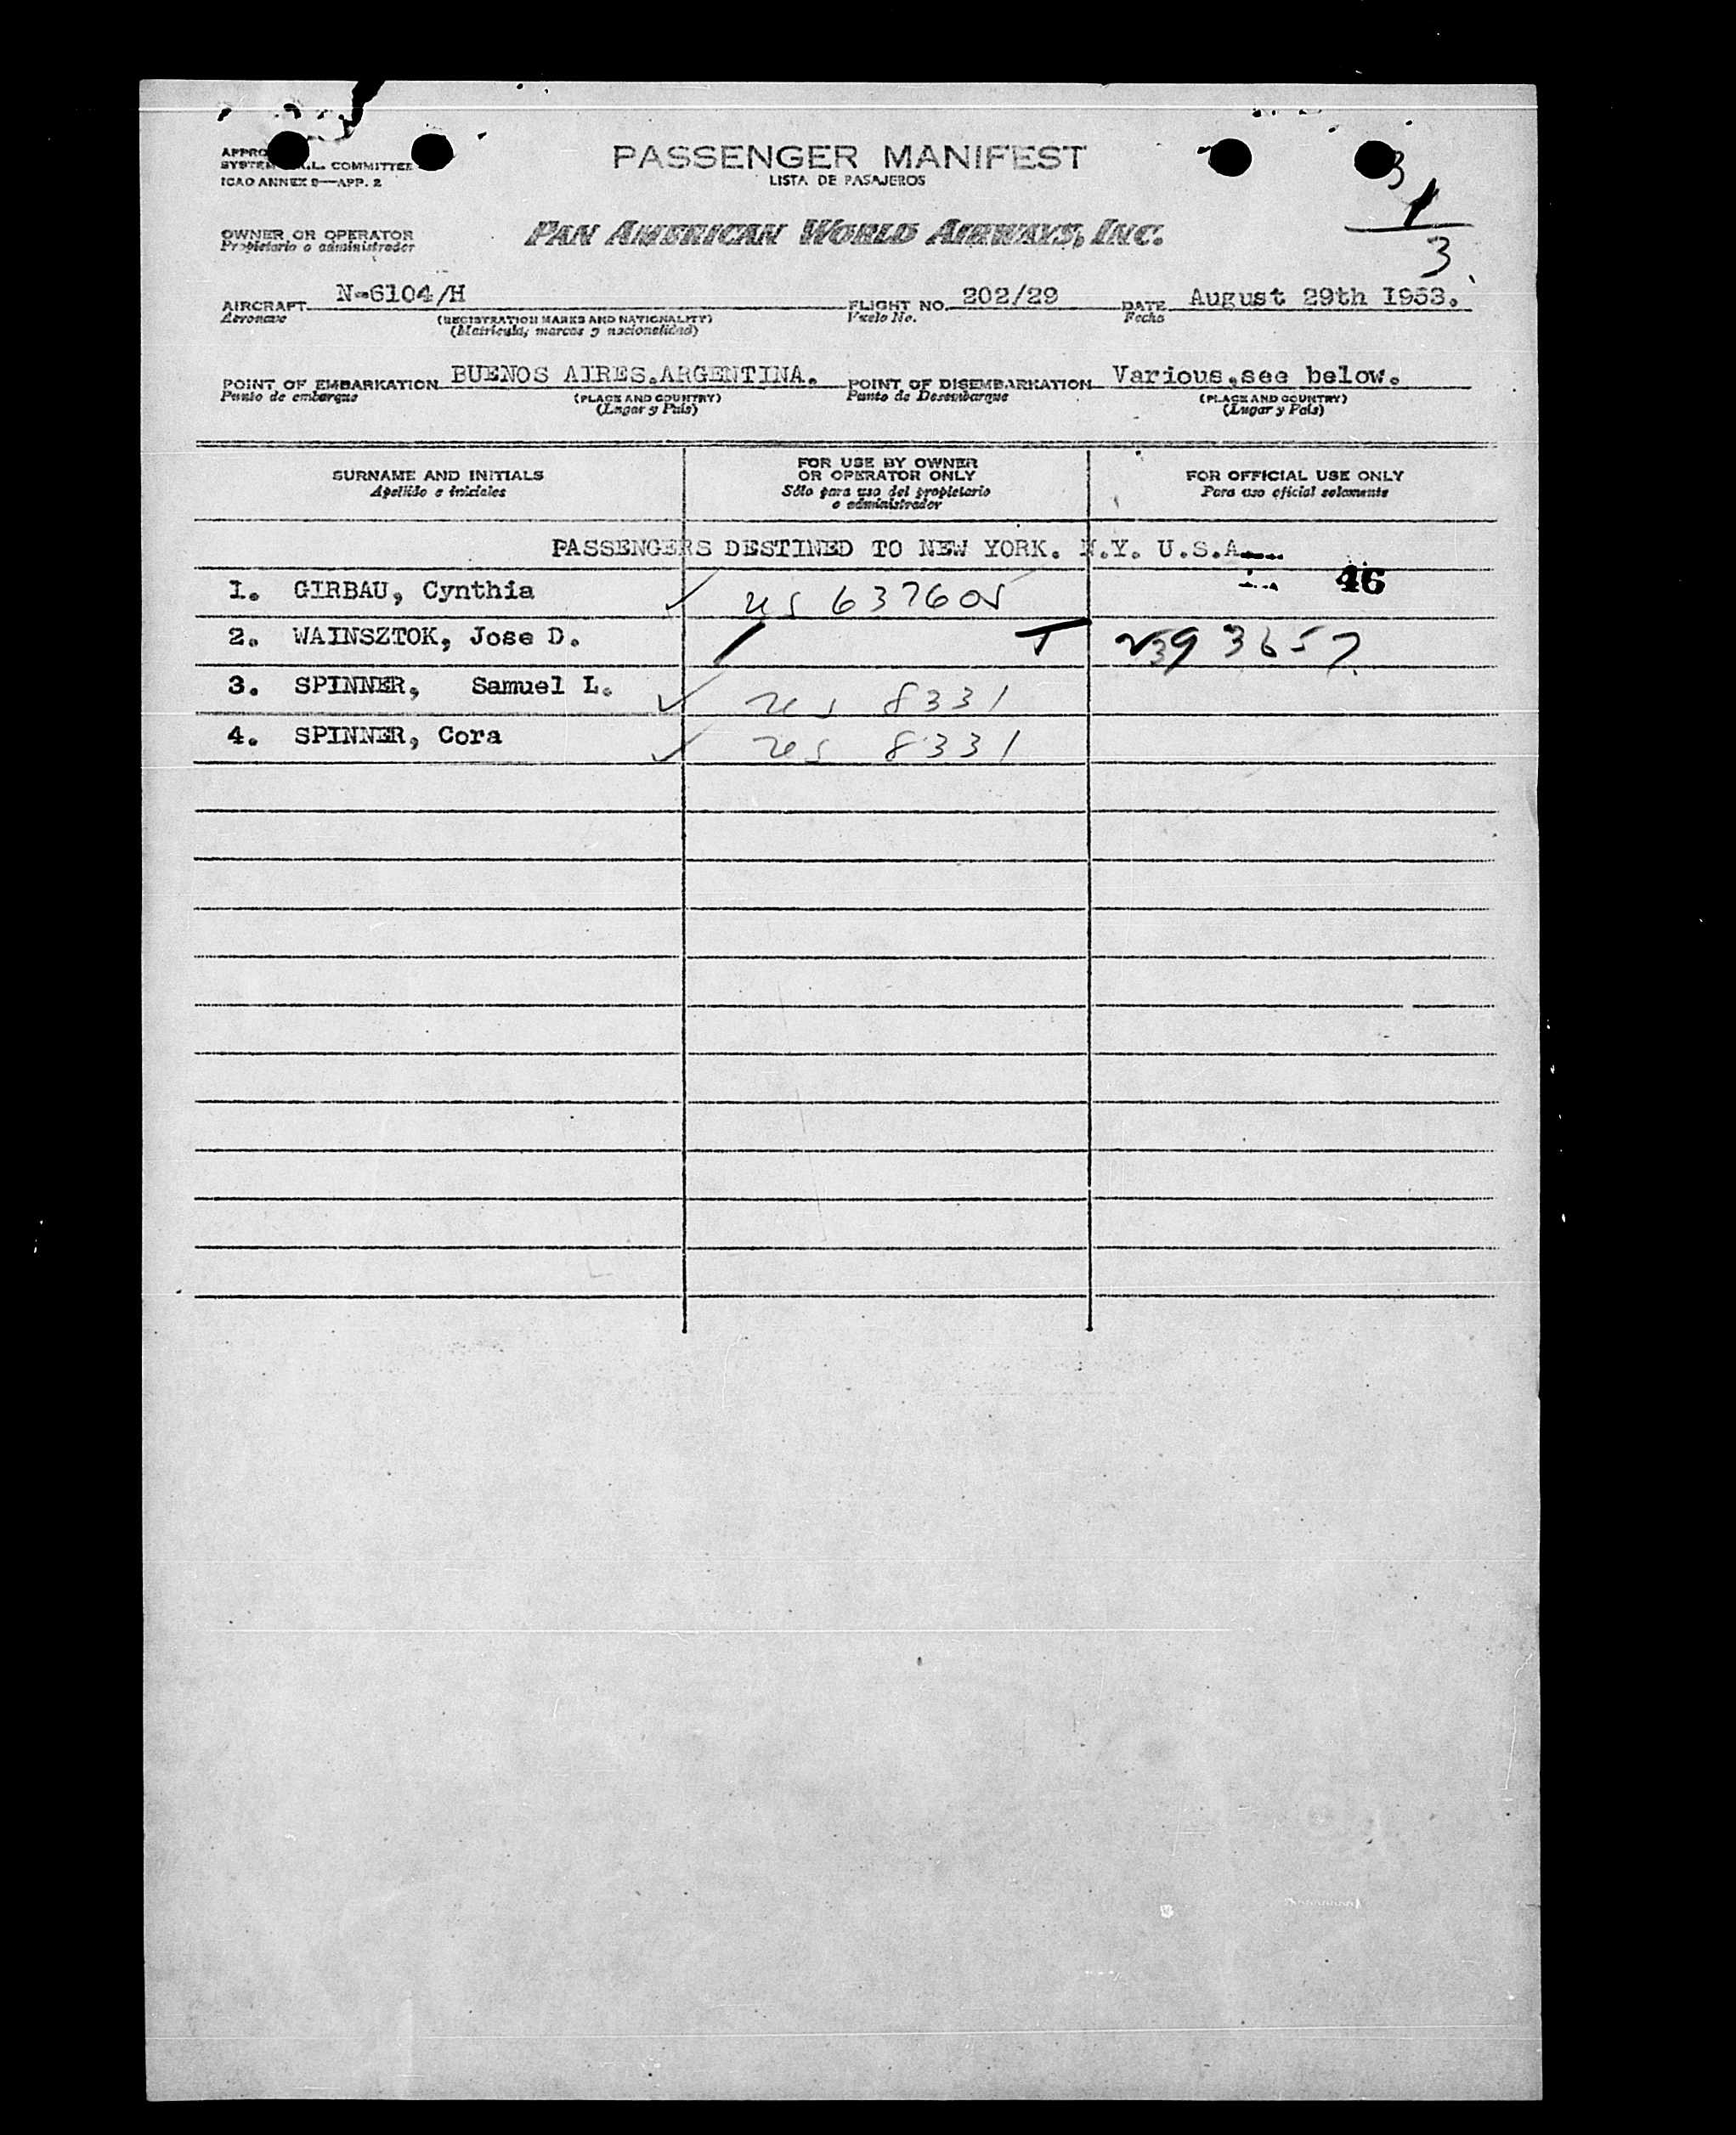 PASSENGER MANIFEST
LISTA DE PASAJEROS
COMMITTEE
ICAO ANNEX 9—APP. 2
OWNER OR OPERATOR
Propietario o administrador
PAN AMERICAN WORLD AIRWAYS, INC.
3
1
3
AIRCRAFT N-6104/H FLIGHT NO. 202/29 DATE August 29th 1953.
Aeronave (REGISTRATION MARKS AND NATIONALITY) Vuelo No. Fecha
(Matricula, marcas y nacionalidad)
POINT OF EMBARKATION BUENOS AIRES.ARGENTINA. POINT OF DISEMBARKATION Various,see below.
Punto de embarque (PLACE AND COUNTRY) Punto de Desembarque (PLACE AND COUNTRY)
(Lugar y País) (Lugar y País)
SURNAME AND INITIALS FOR USE BY OWNER OR OPERATOR ONLY FOR OFFICIAL USE ONLY
Apellido e iniciales Sólo para uso del propietario o administrador Para uso oficial solamente
PASSENGERS DESTINED TO NEW YORK. N.Y. U.S.A.
46
1. GIRBAU, Cynthia us 637605
2. WAINSZTOK, Jose D. T 3657
3. SPINNER, Samuel L. 8331
4. SPINNER, Cora 8331